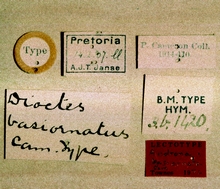 Type
Pretoria
A.J.T. Janse
P. Cameron Coll.
1914-110.
Dioctes
basiornatus
Cam. Type.
B.M. TYPE
HYM.
3b.1420
LECTOTYPE